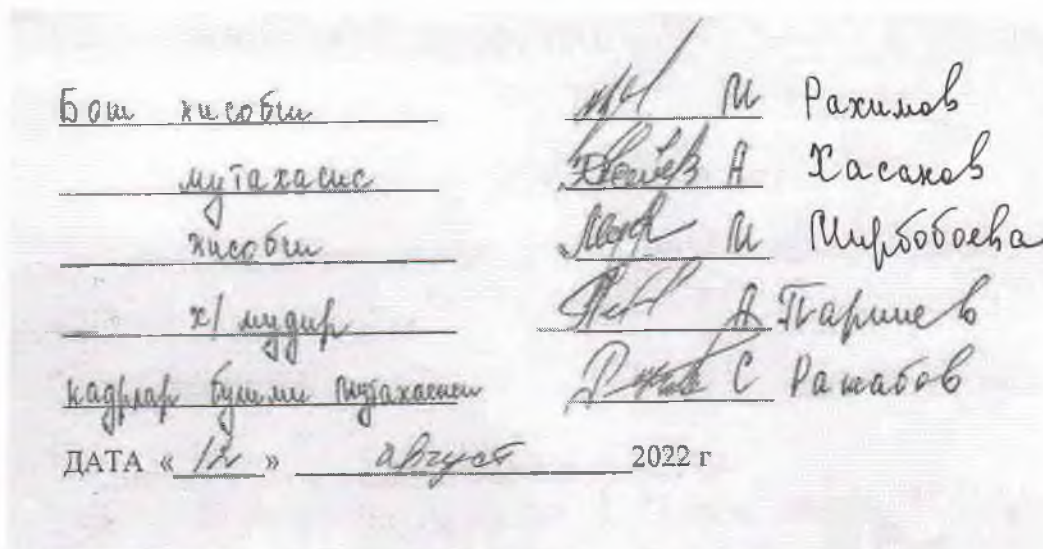 Бош хисобчи М Рахимов
мутахасис А Хасанов
хисобчи М Мирбобоева
х/ мудир А Паришев
кадрлар булими мутахасиси С Ражабов
ДАТА « 12 » август 2022 г